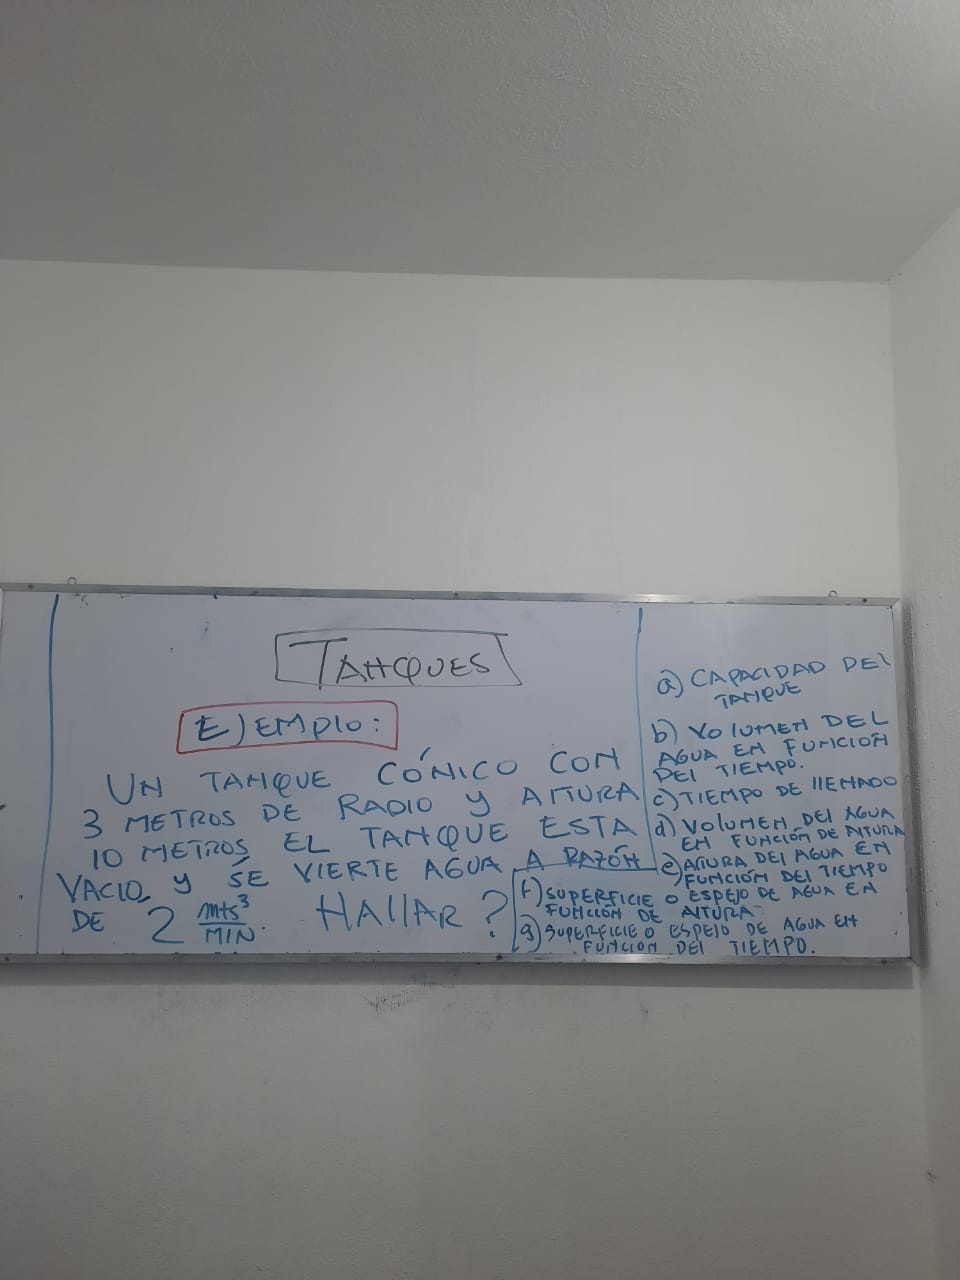 TANQUES
EJEMPlO:
UN TANQUE CÓNICO CON
3 METROS DE RADIO Y AlTURA
10 METROS EL TANQUE ESTA
VACIO, Y SE VIERTE AGUA A RAZÓN
DE 2 mts³/MIN. HAllAR?
a) CAPACIDAD DEl
TANQUE
b) VOlUMEN DEL
AGUA EN FUNCIÓN
DEl TIEMPO.
c) TIEMPO DE llENADO
d) VOlUMEN DEl AGUA
EN FUNCIÓN DE AlTURA
e) AlTURA DEl AGUA EN
FUNCIÓN DEl TIEMPO
f) SUPERFICIE O ESPEJO DE AGUA EN
FUNCIÓN DE AlTURA
g) SUPERFICIE O ESPEJO DE AGUA EN
FUNCIÓN DEl TIEMPO.